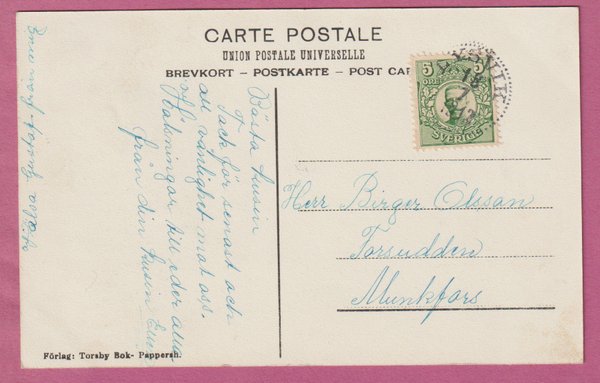 CARTE POSTALE
UNION POSTALE UNIVERSELLE
BREVKORT – POSTKARTE – POST CAR
5 5
ÖRE
SVERIGE
18
7
Bästa kusin
Tack för senast och
all vänlighet mot oss.
Hälsningar till eder alla
från din kusin
Herr Birger Olsson
Forsudden
Munkfors
Förlag: Torsby Bok- Pappersh.